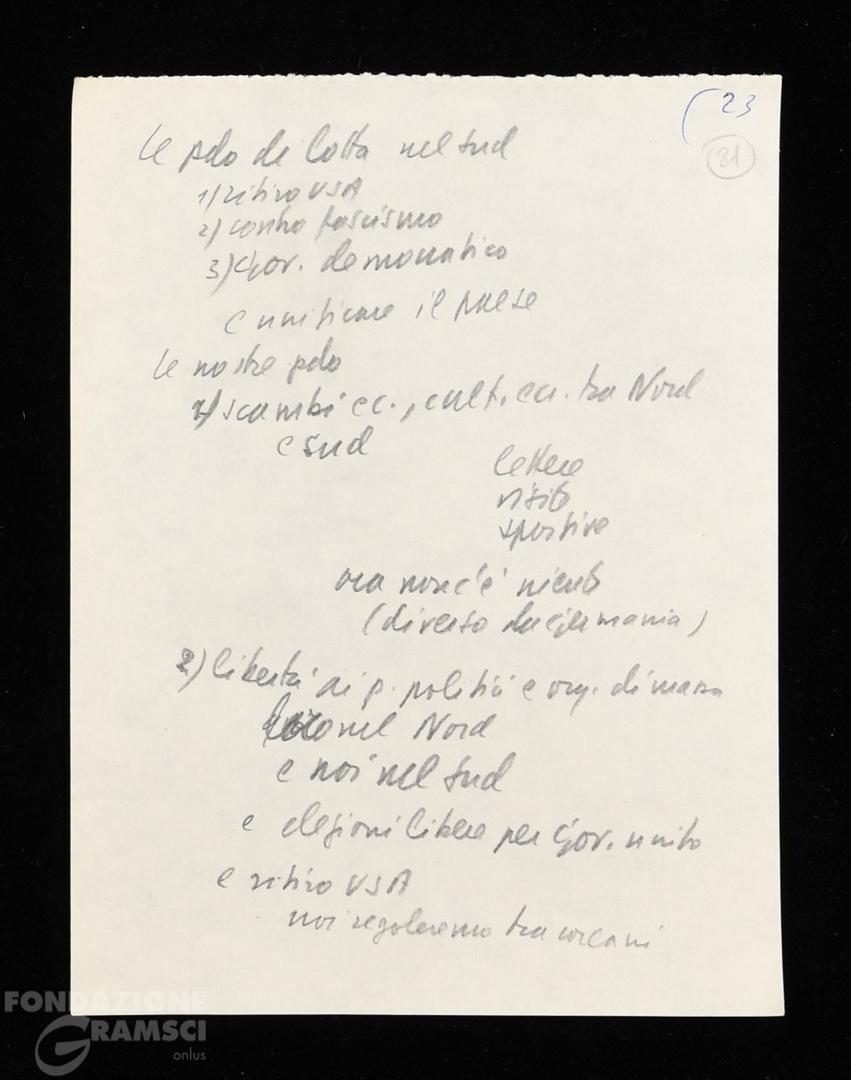 (23
81
le pdo di lotta nel sud
1) ritiro USA
2) contro fascismo
3) Gov. democratico
e unificare il paese
le nostre pdo
1) scambi ec., cult. ecc. tra Nord
e sud
lettere
visite
sportive
ora non c'è niente
(diverso da Germania)
2) libertà ai p. politici e org. di massa
loro nel Nord
e noi nel sud
e elezioni libere per Gov. unito
e ritiro USA
noi regoleremo tra coreani
FONDAZIONE
GRAMSCI
onlus